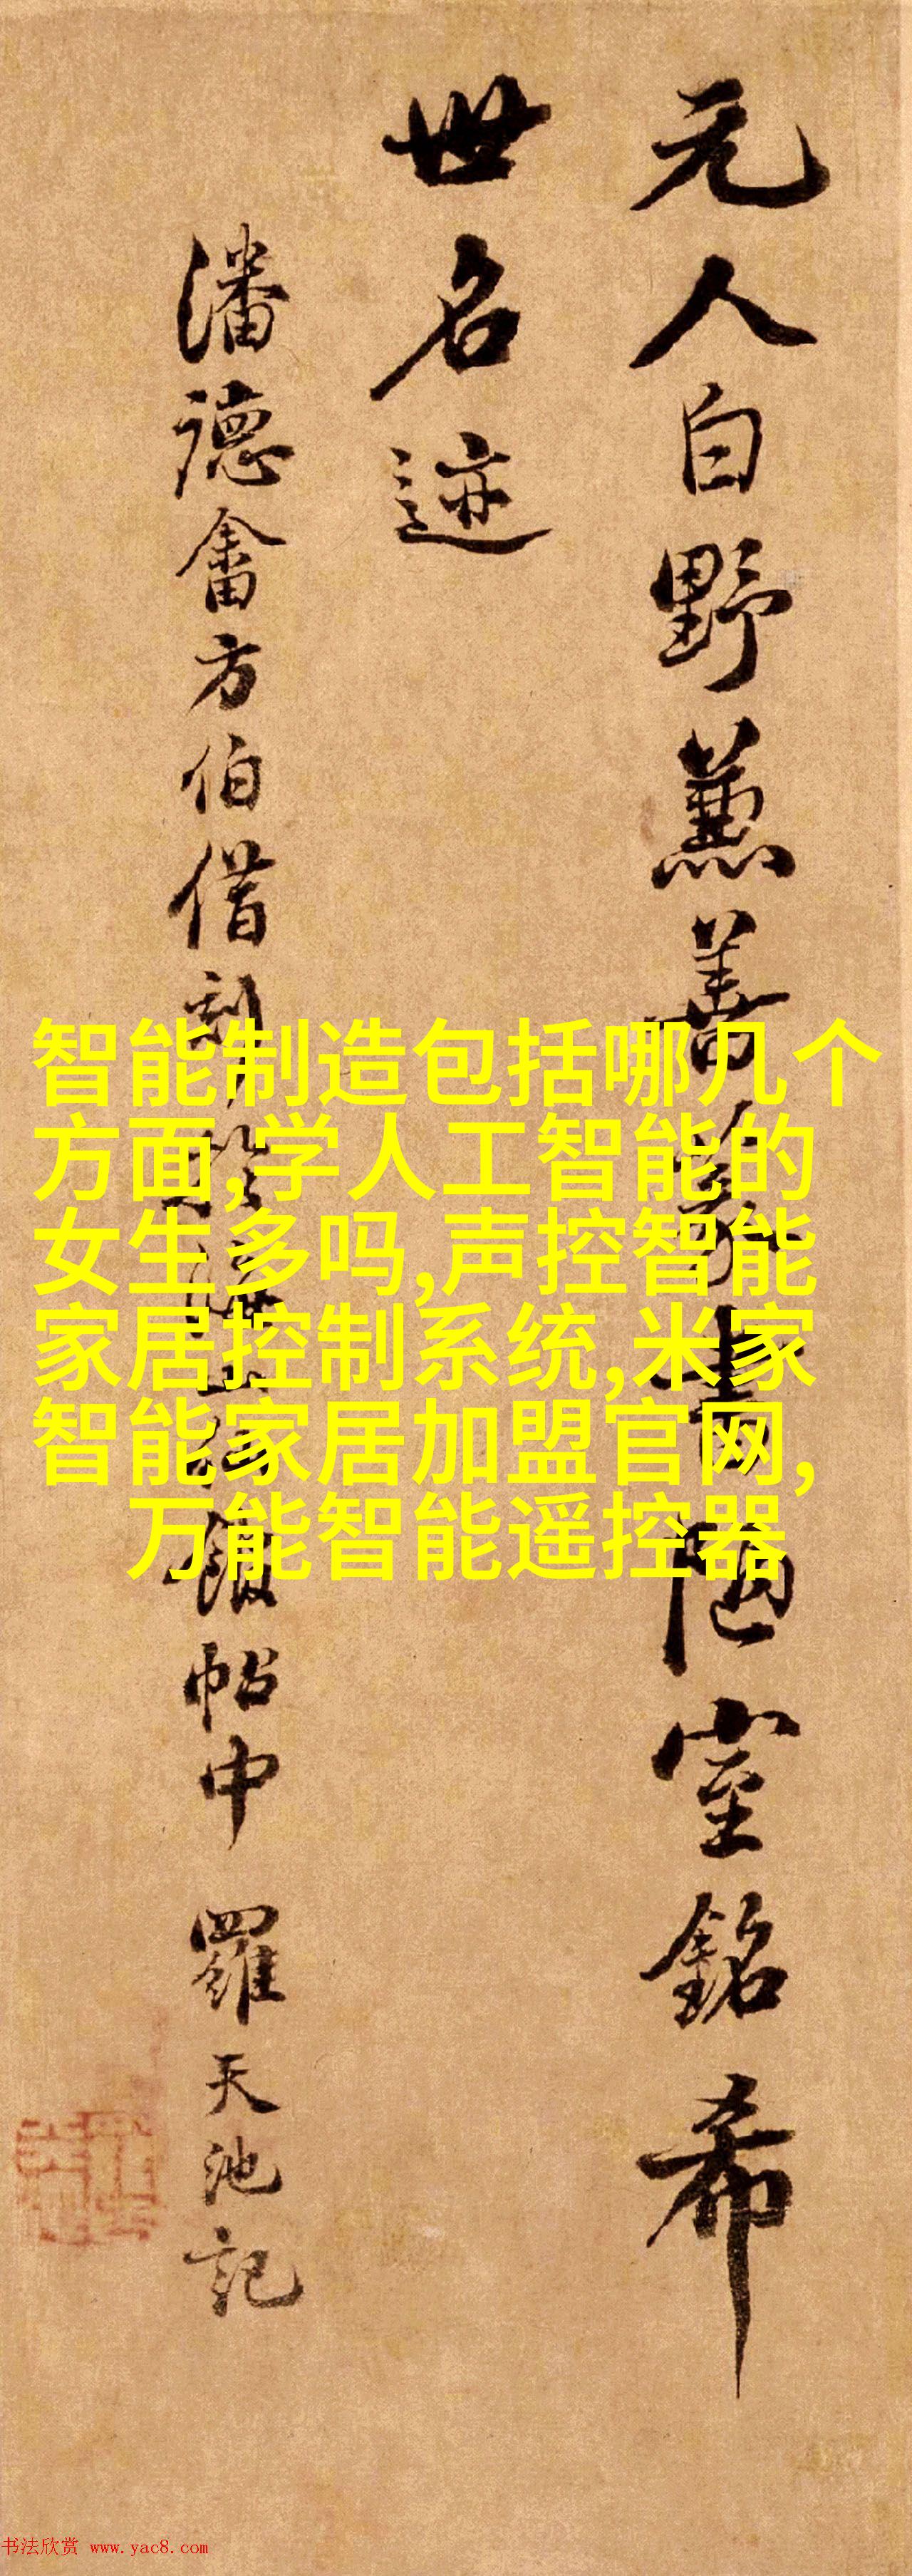 元人白野兼善草書陋室銘希
世名迹
潘德畬方伯借刻
帖中 羅天池記
智能制造包括哪几个
方面,学人工智能的
女生多吗,声控智能
家居控制系统,米家
智能家居加盟官网,
万能智能遥控器
书法欣赏 www.yac8.com